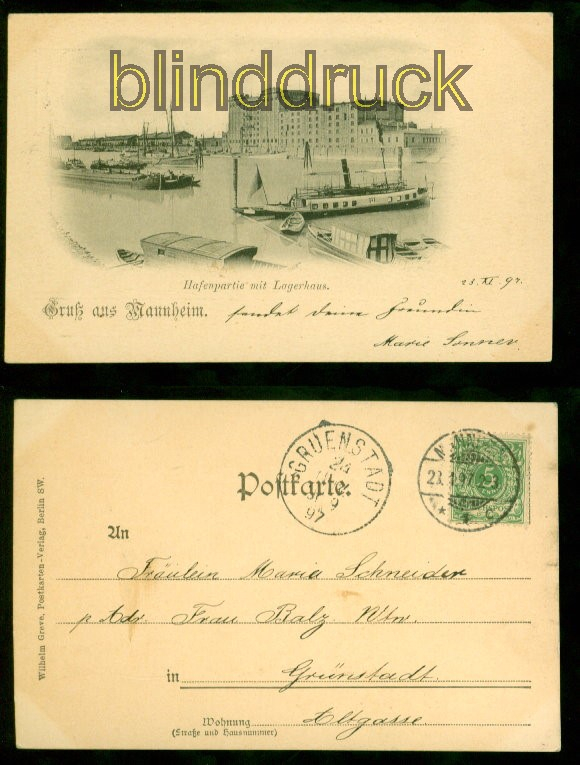 blinddruck
Hafenpartie mit Lagerhaus.
23. XI. 97.
Gruß aus Mannheim. sendet deine Freundin
Marie Sonner.
GRUENSTADT
24
97
5
Postkarte.
An
Fräulein Maria Schneider
p. Adr. Frau Balz Wtw.
in Grünstadt.
Altgasse.
Wohnung
(Straße und Hausnummer)
Wilhelm Greve, Postkarten-Verlag, Berlin SW.